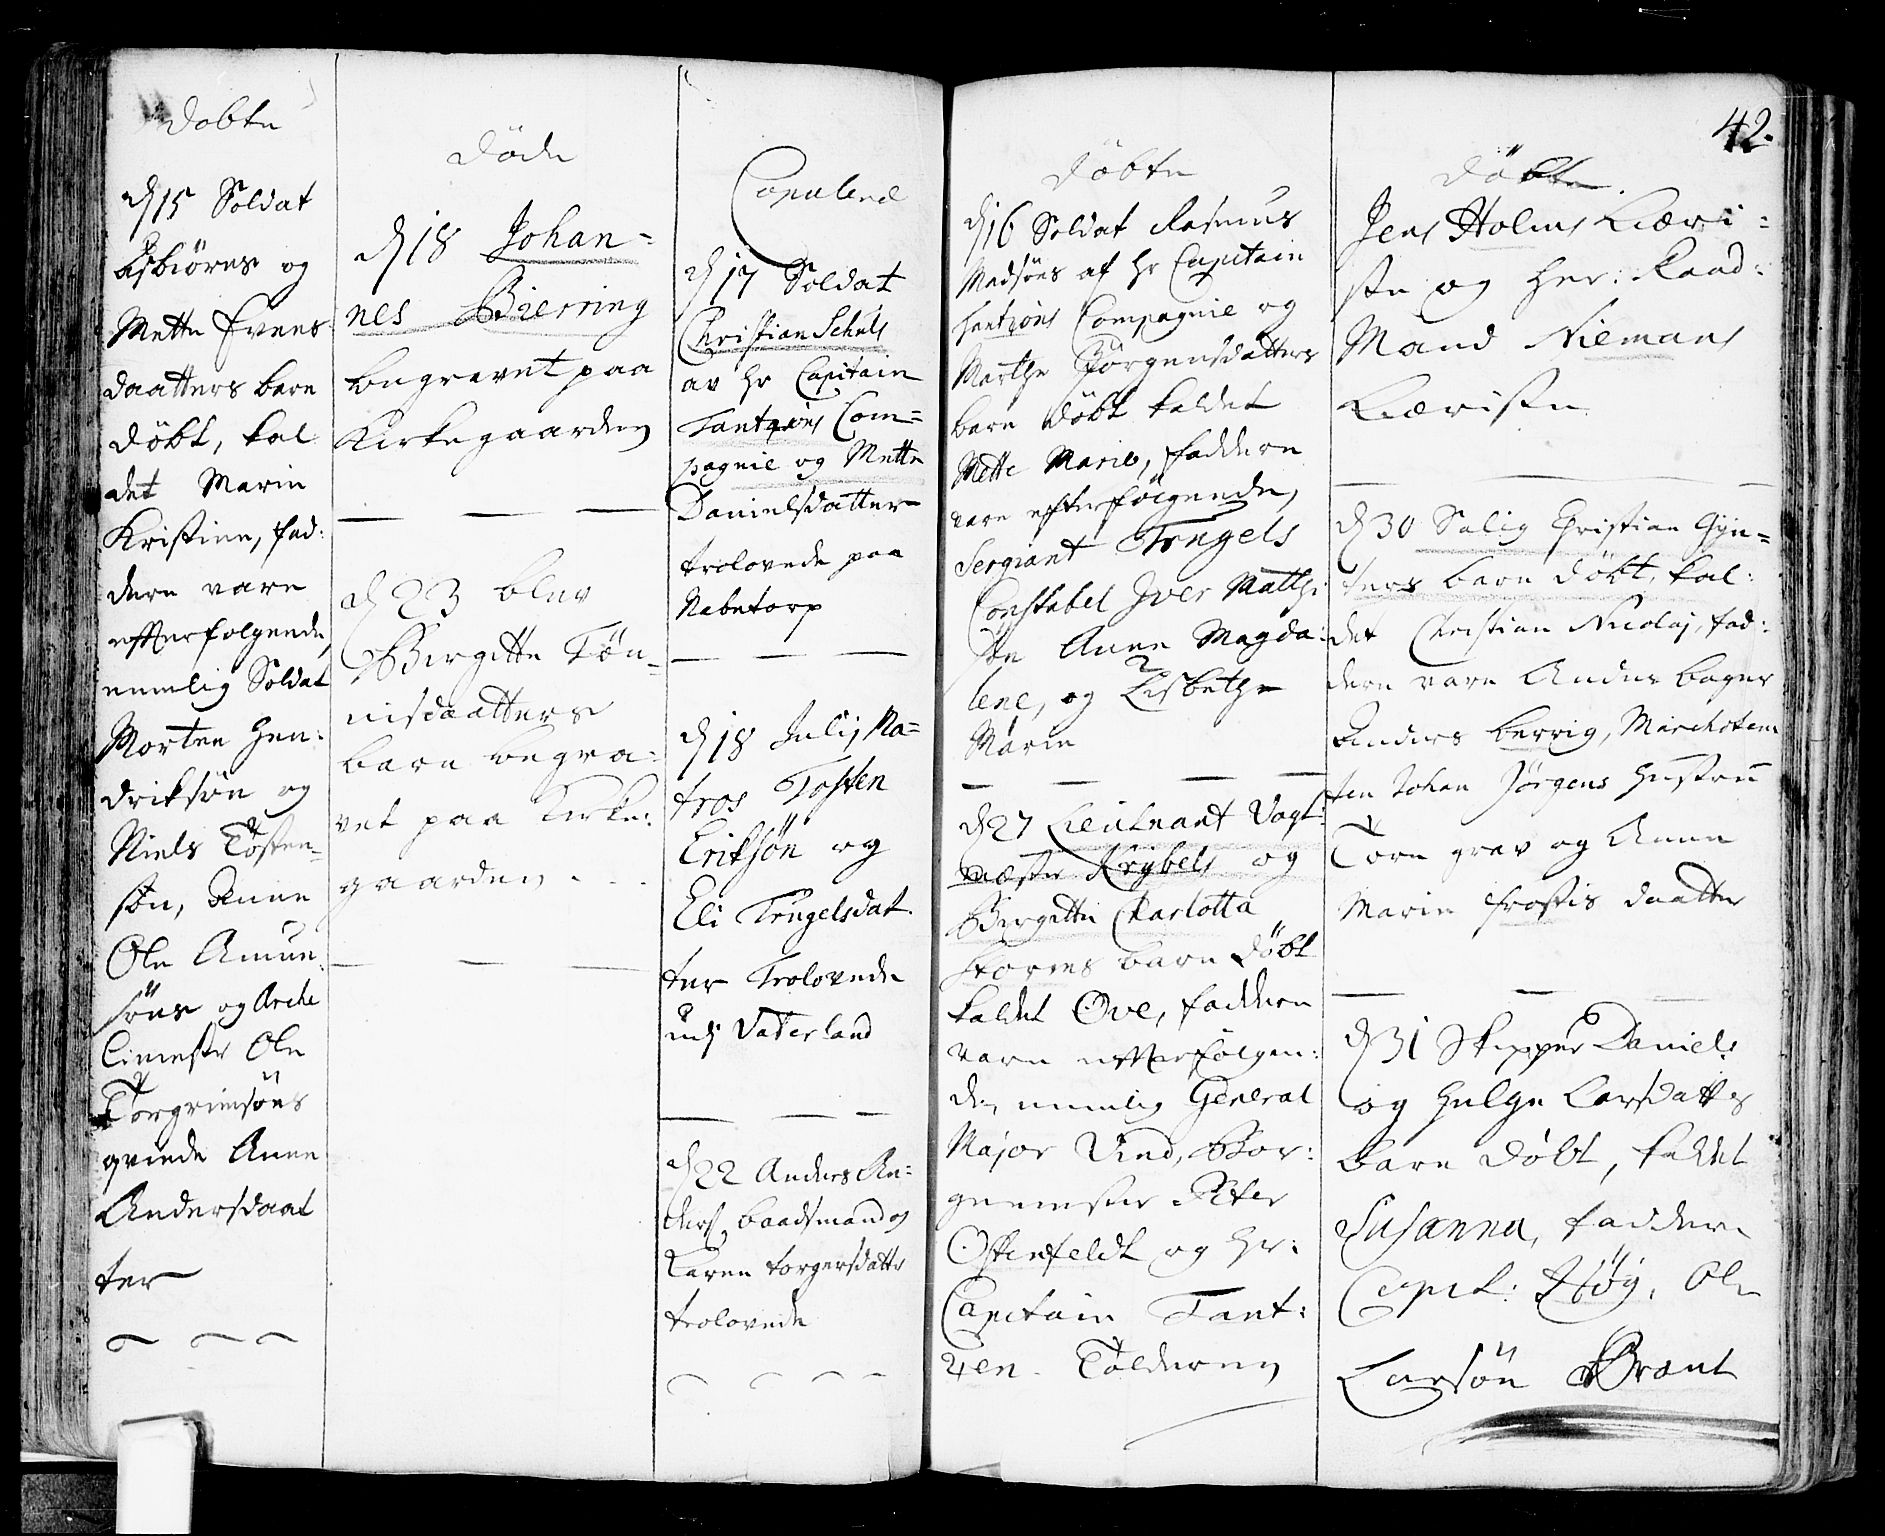 Døbte
d 15 Soldat
Asbiörns og
Mette Evens
daatters barn
döbt, kal
det Marin
Kristine, fad:
dere vare
effterfolgende,
nemlig Soldat
Morten Hen:
driksön og
Niels Tosten-
sön, Anne
Ole Amun
söns og Arche
limestr Ole
Torgrimsöns
qvinde Anne
Andersdaat
ter
Döde
d 18 Johan-
nes Bierring
begravet paa
Kirkegaarden
d 23 blev
Birgitte Tön-
nisdaatters
barn begra:
vet paa Kirke:
gaarden
Copuleret
d 17 Soldat
Christian Schuls
av hr Capitain
Tantzöns Com=
pagnie og Mette
Danielsdatter
trolovede paa
Nabetorp
d 18 Julij Ma=
tros Tosten
Eriksön og
Eli Engelsdat
ter Trolovede
udj Vaterland
d 22 Anders An:
ders baadsmand og
Karen torgersdattr
trolovede
42.
Döbte
d 16 Soldat Rasmus
Madsöns af hr Capitain
Tantzöns Compagnie og
Marthe Börgensdatters
barn döbt kaldet
Mette Marie, faddere
vare efterfölgende,
Sergiant Engels
Constabel Iver Matthi
sön Anne Magda:
lene, og Lisbethe
Marie
d 27 Lieutnant Vagt:
mæster Krybels og
Birgitte Charlotta
Storms barn döbt
kaldet Ove, faddere
vare effterfölgen:
de, nemlig General
Major Vind, Bor:
gemester Peter
Ostenfeldt og Hr:
Capitain Tant:
zen. Tolderens
Döbte
Jens Holms Kieri=
ste og Her: Raad:
Mand Niemans
Kieriste
d 30 Salig Christian Gyn=
ters barn döbt, kal:
det Christian Nicolaj, fad:
dere vare Andres bager
Anders berrig, Marcheten
ter Johan Jörgens Hustru
Torn grav og Anne
Marie frostis daatter
d 31 Skipper Daniels
og Helge Larsdatters
barn döbt, kaldet
Susanna, faddere
Capit: Höy, Ole
Larsön Brant